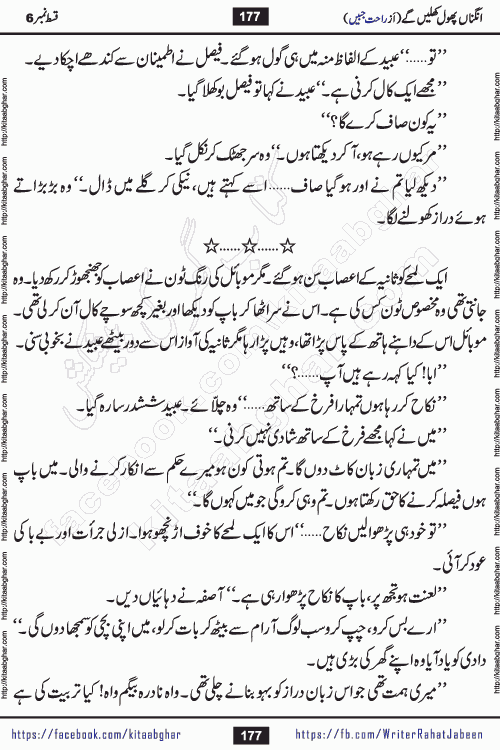 انگناں پھول کھلیں گے (از راحت جبیں) 177 قسط نمبر 6
”تو......“ عبید کے الفاظ منہ میں ہی گول ہو گئے۔ فیصل نے اطمینان سے کندھے اچکا دیے۔
”مجھے ایک کال کرنی ہے۔“ عبید نے کہا تو فیصل بوکھلا گیا۔
”یہ کون صاف کرے گا؟“
”مر کیوں رہے ہو، آ کر دیکھتا ہوں۔“ وہ سر جھٹک کر نکل گیا۔
”دیکھ لیا تم نے اور ہو گیا صاف...... اسے کہتے ہیں، نیکی کر گلے میں ڈال۔“ وہ بڑبڑاتے
ہوئے دراز کھولنے لگا۔
☆......☆......☆
ایک لمحے کو ثانیہ کے اعصاب سن ہو گئے۔ مگر موبائل کی رنگ ٹون نے اعصاب کو جھنجھوڑ کر رکھ دیا۔ وہ
جانتی تھی وہ مخصوص ٹون کس کی ہے۔ اس نے سر اٹھا کر باپ کو دیکھا اور بغیر کچھ سوچے کال آن کر لی تھی۔
موبائل اس کے داہنے ہاتھ کے پاس پڑا تھا، وہیں پڑا رہا مگر ثانیہ کی آواز اس سے دور بیٹھے عبید نے بخوبی سنی۔
”ابا! کیا کہہ رہے ہیں آپ......؟“
”نکاح کر رہا ہوں تمہارا فرخ کے ساتھ......“ وہ چلائے۔ عبید ششدر سا رہ گیا۔
”میں نے کہا مجھے فرخ کے ساتھ شادی نہیں کرنی۔“
”میں تمہاری زبان کاٹ دوں گا۔ تم ہوتی کون ہو میرے حکم سے انکار کرنے والی۔ میں باپ
ہوں فیصلہ کرنے کا حق رکھتا ہوں۔ تم وہی کرو گی جو میں کہوں گا۔“
”تو خود ہی پڑھوا لیں نکاح......“ اس کا ایک لمحے کا خوف اڑنچھو ہوا۔ ازلی جرأت اور بے باکی
عود کر آئی۔
”لعنت ہو تجھ پر، باپ کا نکاح پڑھوا رہی ہے۔“ آصفہ نے دہائیاں دیں۔
”ارے بس کرو، چپ کرو سب لوگ آرام سے بیٹھ کر بات کر لو، میں اپنی بچی کو سمجھا دوں گی۔“
دادی کو یاد آیا وہ اپنے گھر کی بڑی ہیں۔
”میری ہمت تھی جو اس زبان دراز کو بہو بنانے چلی تھی۔ واہ نادرہ بیگم واہ! کیا تربیت کی ہے
https://facebook.com/kitaabghar 177 https://fb.com/WriterRahatJabeen
http://kitaabghar.com